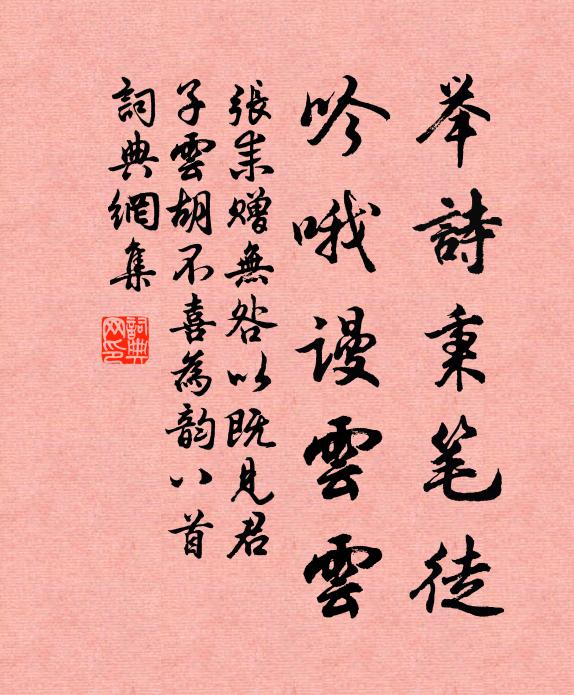 举詩秉笔徒
吟哦謾雲雲
張耒赠無咎以既見君
子雲胡不喜為韵八首
詞典網集
詞典网印